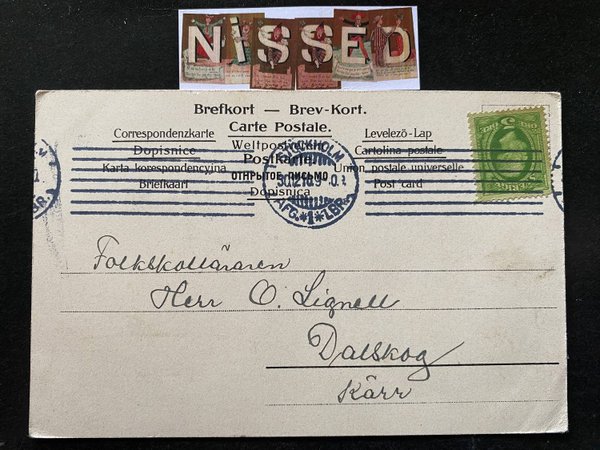 NISSED
Brefkort — Brev-Kort.
Carte Postale.
Correspondenzkarte Weltpostverein Levelezö-Lap
Dopisnice Postkarte Cartolina postale
Karta korespondencyjna ОТКРЫТОЕ ПИСЬМО Union postale universelle
Briefkaart Dopisnica Post card
STOCKHOLM
AFG.*1*LBR.
LBR.
5
Folkskolläraren
Herr O. Lignell
Dalskog
Kärr